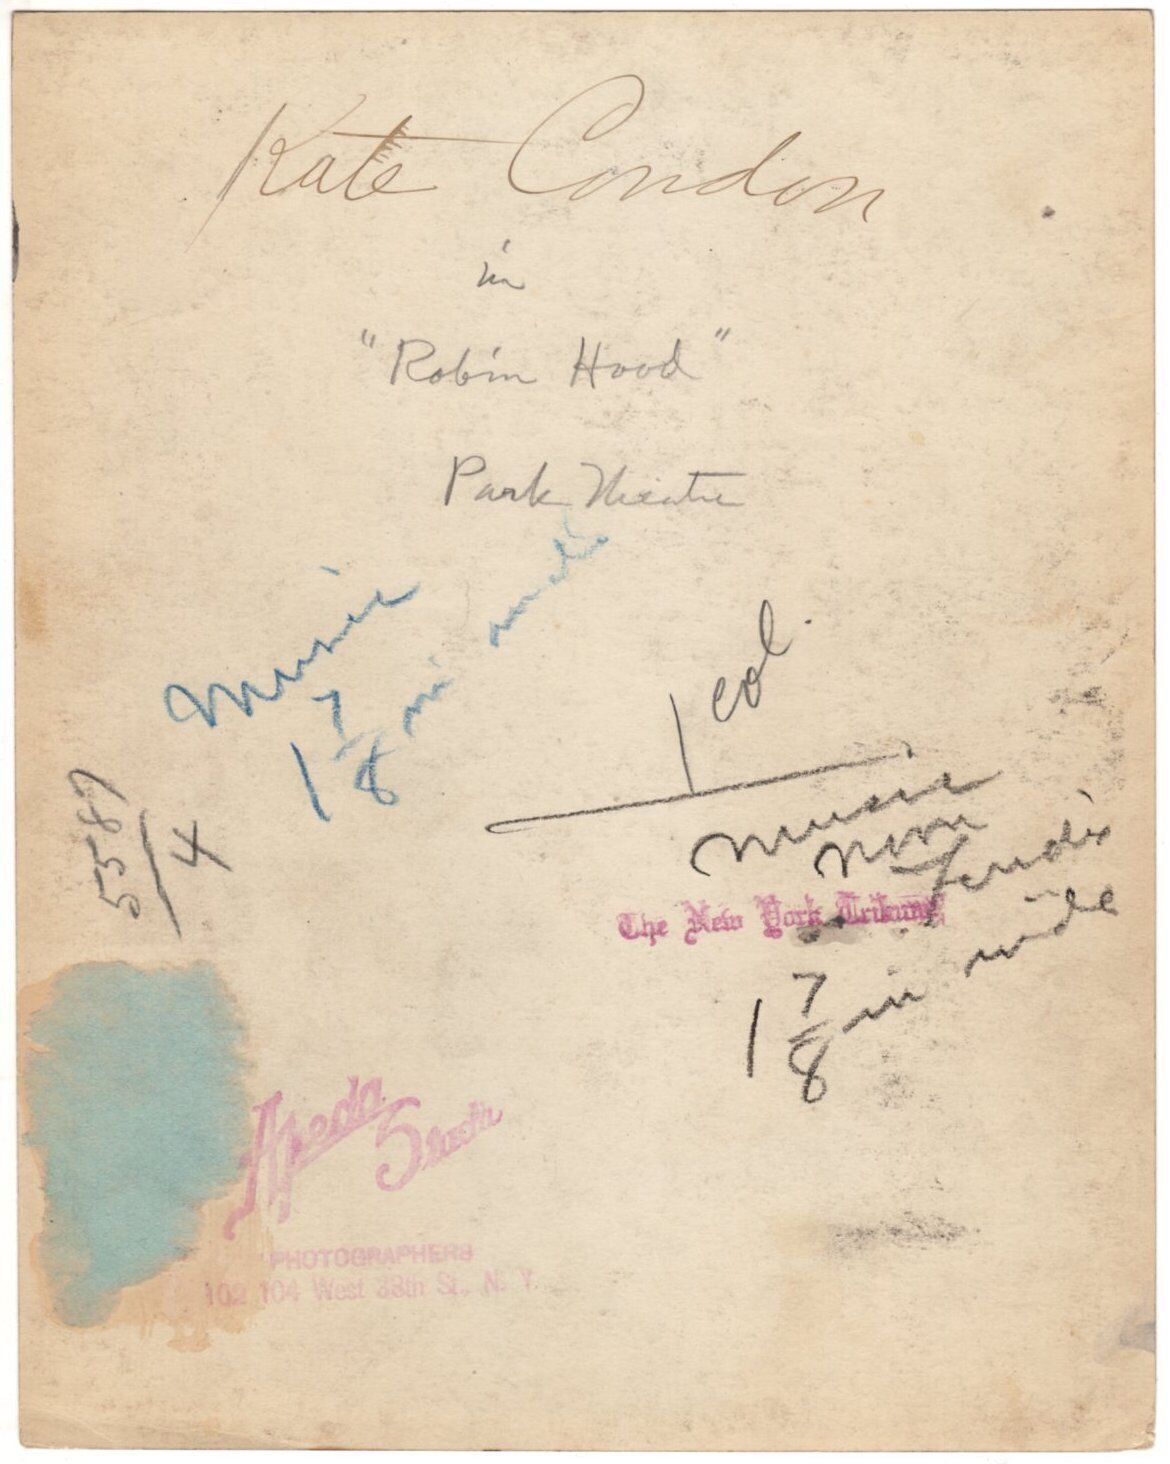 Kate Condon
in
"Robin Hood"
Park Theatre
Music
1 7/8 in wide
1 col.
Music
5587/4
The New York Tribune
1 7/8 in wide
Apeda Studio
PHOTOGRAPHERS
102 104 West 38th St., N. Y.